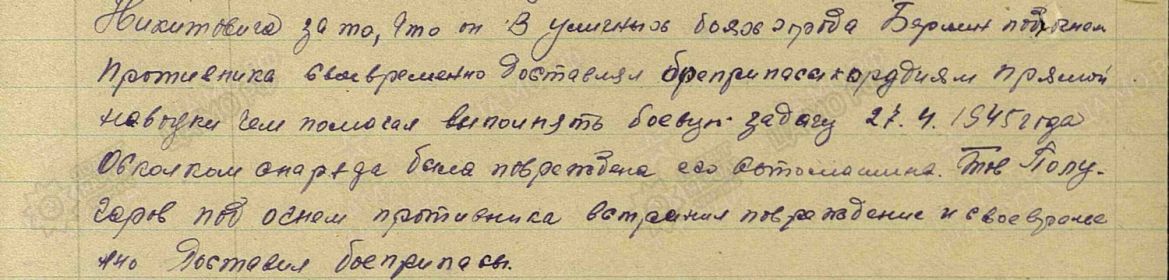 Никитовича за то, что он в уличных боях города Берлин под огнем
противника своевременно доставлял боеприпасы к орудиям прямой
наводки чем помогал выполнять боевую задачу 27.4.1945 года
Осколком снаряда была повреждена его автомашина. Тов Полу-
гаров под огнем противника встранил повреждение и своевреме
нно доставил боеприпасы.